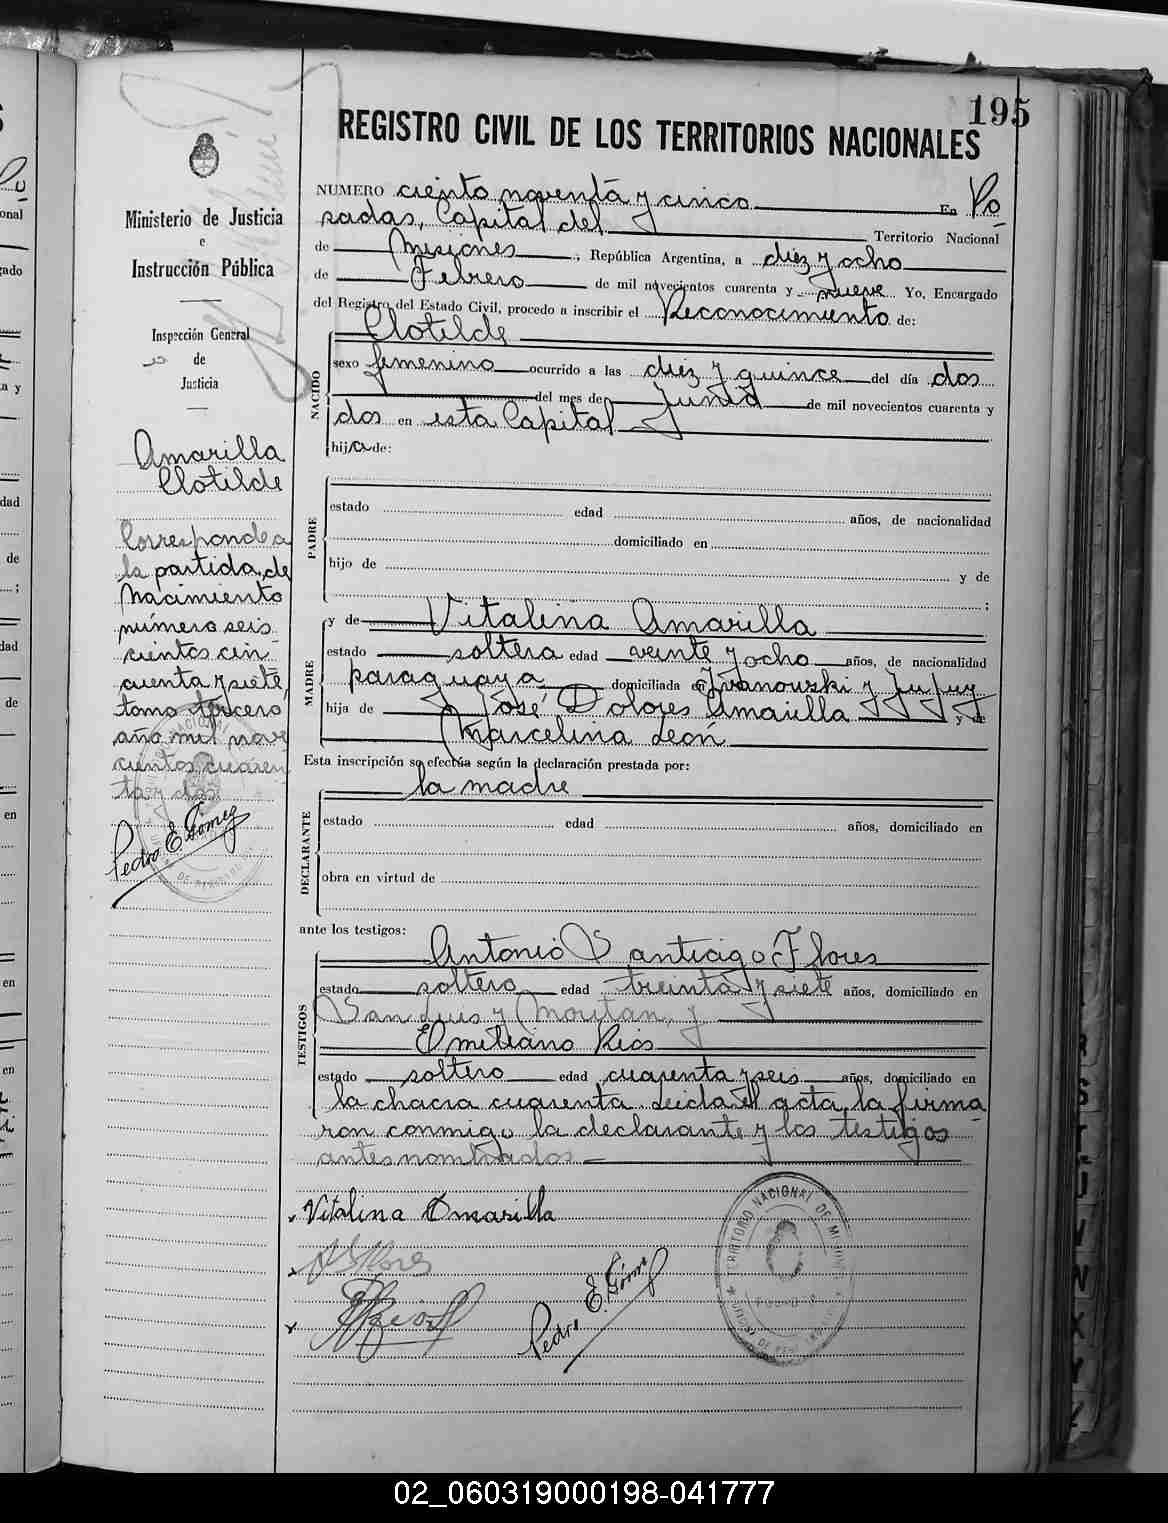 195
REGISTRO CIVIL DE LOS TERRITORIOS NACIONALES
Ministerio de Justicia
e
Instrucción Pública
Inspección General
de
Justicia
Amarilla
Clotilde
Corresponde a
la partida de
Nacimiento
número seis
cientos cin
cuenta y siete,
tomo tercero
año mil nove
cientos cuaren
ta y dos
Pedro E. Gómez
NUMERO ciento noventa y cinco En Po
sadas, Capital del Territorio Nacional
de Misiones, República Argentina, a diez y ocho
de Febrero de mil novecientos cuarenta y nueve Yo, Encargado
del Registro del Estado Civil, procedo a inscribir el Reconocimiento de:
NACIDO
Clotilde
sexo femenino ocurrido a las diez y quince del día dos
del mes de Junio de mil novecientos cuarenta y
dos en esta Capital
hija de:
PADRE
estado edad años, de nacionalidad
domiciliado en
hijo de y de
;
MADRE
y de Vitalina Amarilla
estado soltera edad veinte y ocho años, de nacionalidad
paraguaya domiciliada en Ivanowski y Jujuy
hija de José Dolores Amarilla y de
Marcelina León
Esta inscripción se efectúa según la declaración prestada por:
la madre
DECLARANTE
estado edad años, domiciliado en
obra en virtud de
ante los testigos:
TESTIGOS
Antonio Santiago Flores
estado soltero edad treinta y siete años, domiciliado en
San Luis y Moutan, y
Emiliano Rios
estado soltero edad cuarenta y seis años, domiciliado en
la chacra cuarenta. Leída el acta, la firma
ron conmigo la declarante y los testigos
antes nombrados.
Vitalina Amarilla
A S Flores
E Rios
Pedro E. Gómez
TERRITORIO NACIONAL DE MISIONES
POSADAS
02_060319000198-041777